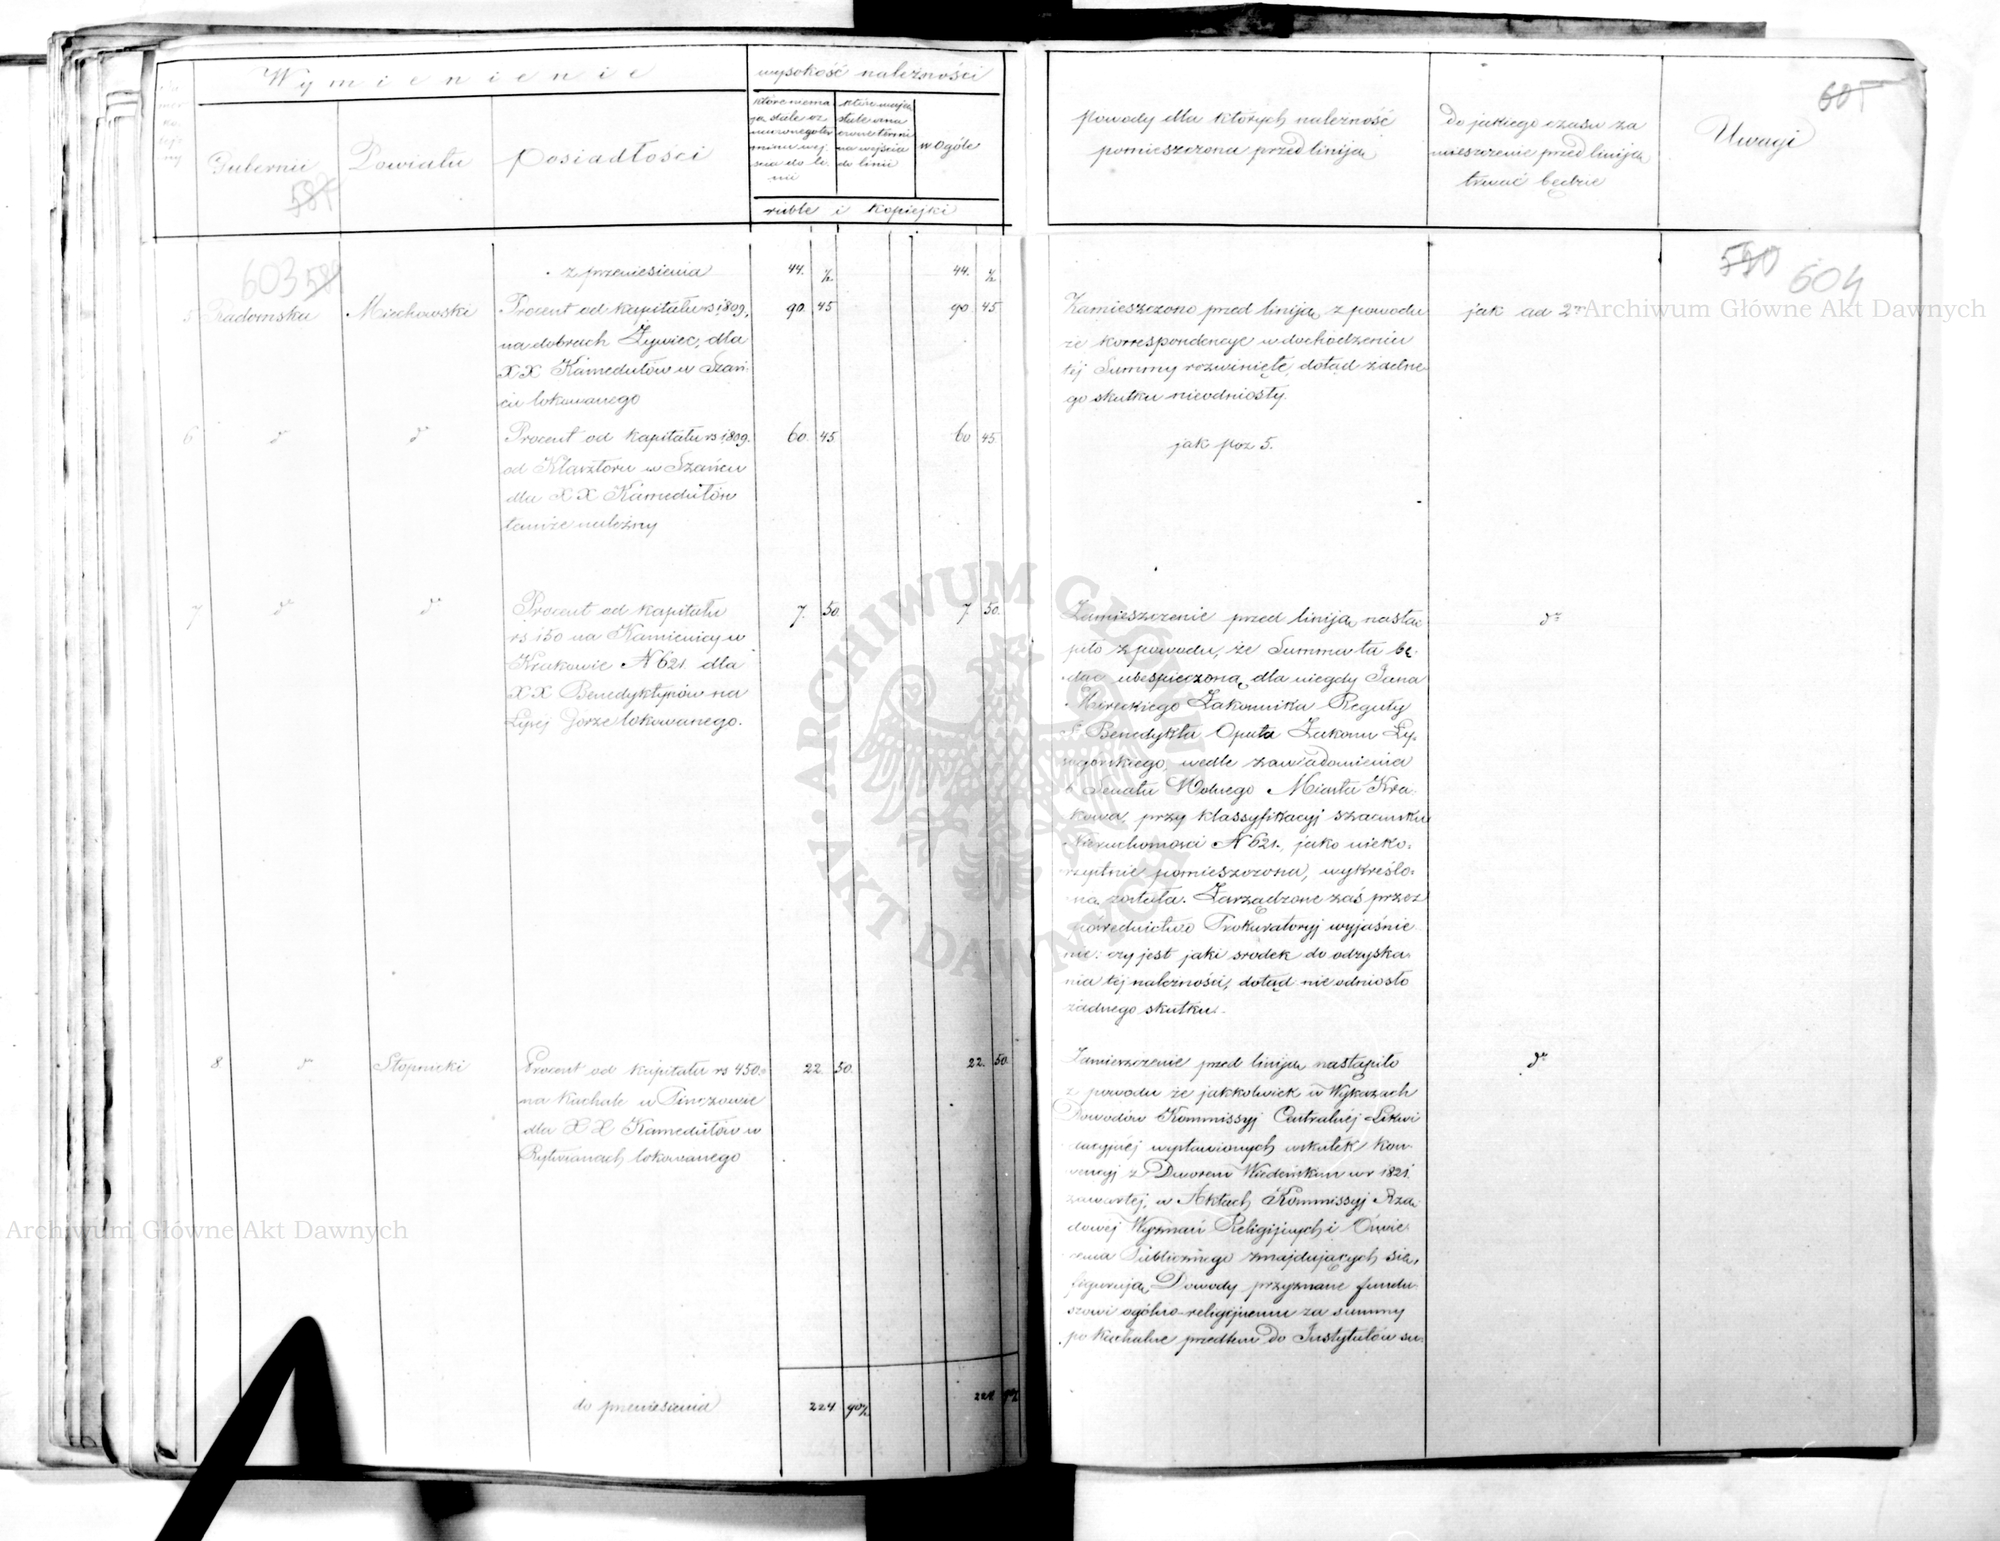 Wymienienie
wysokość należności
Gubernii
Powiatu
posiadłości
w Ogóle
ruble i kopiejki
587
603
z przeniesienia 44. ½ 44. ½
5 Radomska Miechowski Procent od kapitału rs 1809, 90. 45 90 45
na dobrach Żywiec, dla
XX Kamedułów w Szań-
cu lokowanego
6 dº dº Procent od kapitału rs 1809. 60. 45 60 45
od Klasztoru w Szańcu
dla XX Kamedułów
tamże należny
7 dº dº Procent od kapitału 7. 50. 7. 50.
rs 150 na Kamienicy w
Krakowie N 621. dla
XX Benedyktynów na
Łysej Górze lokowanego.
8 dº Stopnicki Procent od kapitału rs 450. 22. 50. 22. 50.
na Kachale w Pinczowie
dla XX Kamedułów w
Rytwianach lokowanego
do przeniesienia 224 90½ 224 90½
powody dla których należność
pomieszczona przed liniją
Do jakiego czasu za
mieszczenie przed liniją
trwać będzie
Uwagi
605
590 604
Zamieszczono przed liniją z powodu jak ad 2
że korrespondencye w dochodzeniu
téj Summy rozwinięte, dotąd żadne-
go skutku nieodniosły.
jak poz 5.
Zamieszczenie przed liniją nastą- dº
piło z powodu, że Summa ta bę-
dąc ubespieczoną dla niegdy Jana
Zakonnika Reguły
S. Benedykta Opata Zakonu Ły-
sogórskiego, wedle zawiadomienia
b. Senatu Wolnego Miasta Kra-
kowa, przy klassyfikacyj szacunku
Nieruchomości N 621., jako nieko-
rzystnie pomieszczona, wykreślo-
na została. Zarządzone zaś przez
pośrednictwo Prokuratoryj wyjaśnie-
nie: czy jest jaki srodek do odzyska-
nia téj należności, dotąd nie odniosło
żadnego skutku.
Zamieszczenie przed liniją nastąpiło dº
z powodu że jakkolwiek w Wykazach
Dowodów Kommissyj Centralnéj Likwi-
dacyjnéj wystawionych wskutek Kon-
wencyj z Dworem Wiedeńskim w r 1821.
zawartéj, w Aktach Kommissyj Rzą-
dowéj Wyznań Religijnych i Oświe-
cenia Publicznego znajdujących się,
figurują Dowody przyznane fundu-
szowi ogólno-religijnemu za summy
po Kachalne przedtem do Instytutów su-
Archiwum Główne Akt Dawnych
Archiwum Główne Akt Dawnych
ARCHIWUM GŁÓWNE AKT DAWNYCH